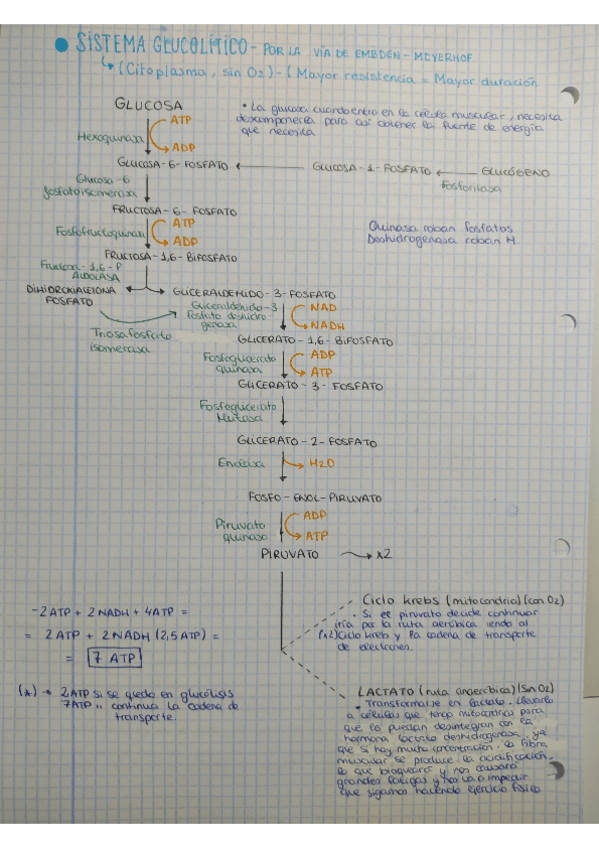 SISTEMA GLUCOLÍTICO - POR LA VÍA DE EMBDEN - MEYERHOF
(Citoplasma, sin O2) - (Mayor resistencia = Mayor duración
GLUCOSA
• La glucosa cuando entra en la célula muscular, necesita
descomponerla para así obtener la fuente de energía
que necesita
ATP
Hexoquinasa
ADP
GLUCOSA-6-FOSFATO
GLUCOSA-1-FOSFATO
GLUCÓGENO
fosforilasa
Glucosa-6
fosfatoisomerasa
FRUCTOSA-6-FOSFATO
ATP
Fosfofructoquinasa
ADP
Quinasa roban fosfatos
Deshidrogenasa roban H.
FRUCTOSA-1,6-BIFOSFATO
Fructosa-1,6-P
ALDOLASA
DIHIDROXIACETONA
FOSFATO
GLICERALDEHIDO-3-FOSFATO
Gliceraldehido-3
fosfato deshidro
genasa
NAD
NADH
Triosafosfato
isomerasa
GLICERATO-1,6-BIFOSFATO
Fosfoglicerato
quinasa
ADP
ATP
GLICERATO-3-FOSFATO
Fosfoglicerato
Mutasa
GLICERATO-2-FOSFATO
Enolasa
H2O
FOSFO-ENOL-PIRUVATO
Piruvato
quinasa
ADP
ATP
PIRUVATO
x2
Ciclo krebs (mitocondria) (con O2)
• Si el piruvato decide continuar
iría por la ruta aeróbica yendo al
(x2) Ciclo kreb y la cadena de transporte
de electrones.
-2ATP + 2NADH + 4ATP =
= 2ATP + 2NADH (2,5ATP) =
= 7 ATP
(x) → 2ATP si se queda en glucólisis
7ATP " continua la cadena de
transporte.
LACTATO (ruta anaeróbica) (Sin O2)
• Transformarse en lactato. llevarlo
a células que tengo mitocondrias para
que lo puedan desintegrar con la
hormona lactato deshidrogenasa, ya
que si hay mucha concentración. la fibra
muscular se produce la acidificación,
lo que bloqueará y nos causará
grandes fatigas y nos va a impedir
que sigamos haciendo ejercicio físico